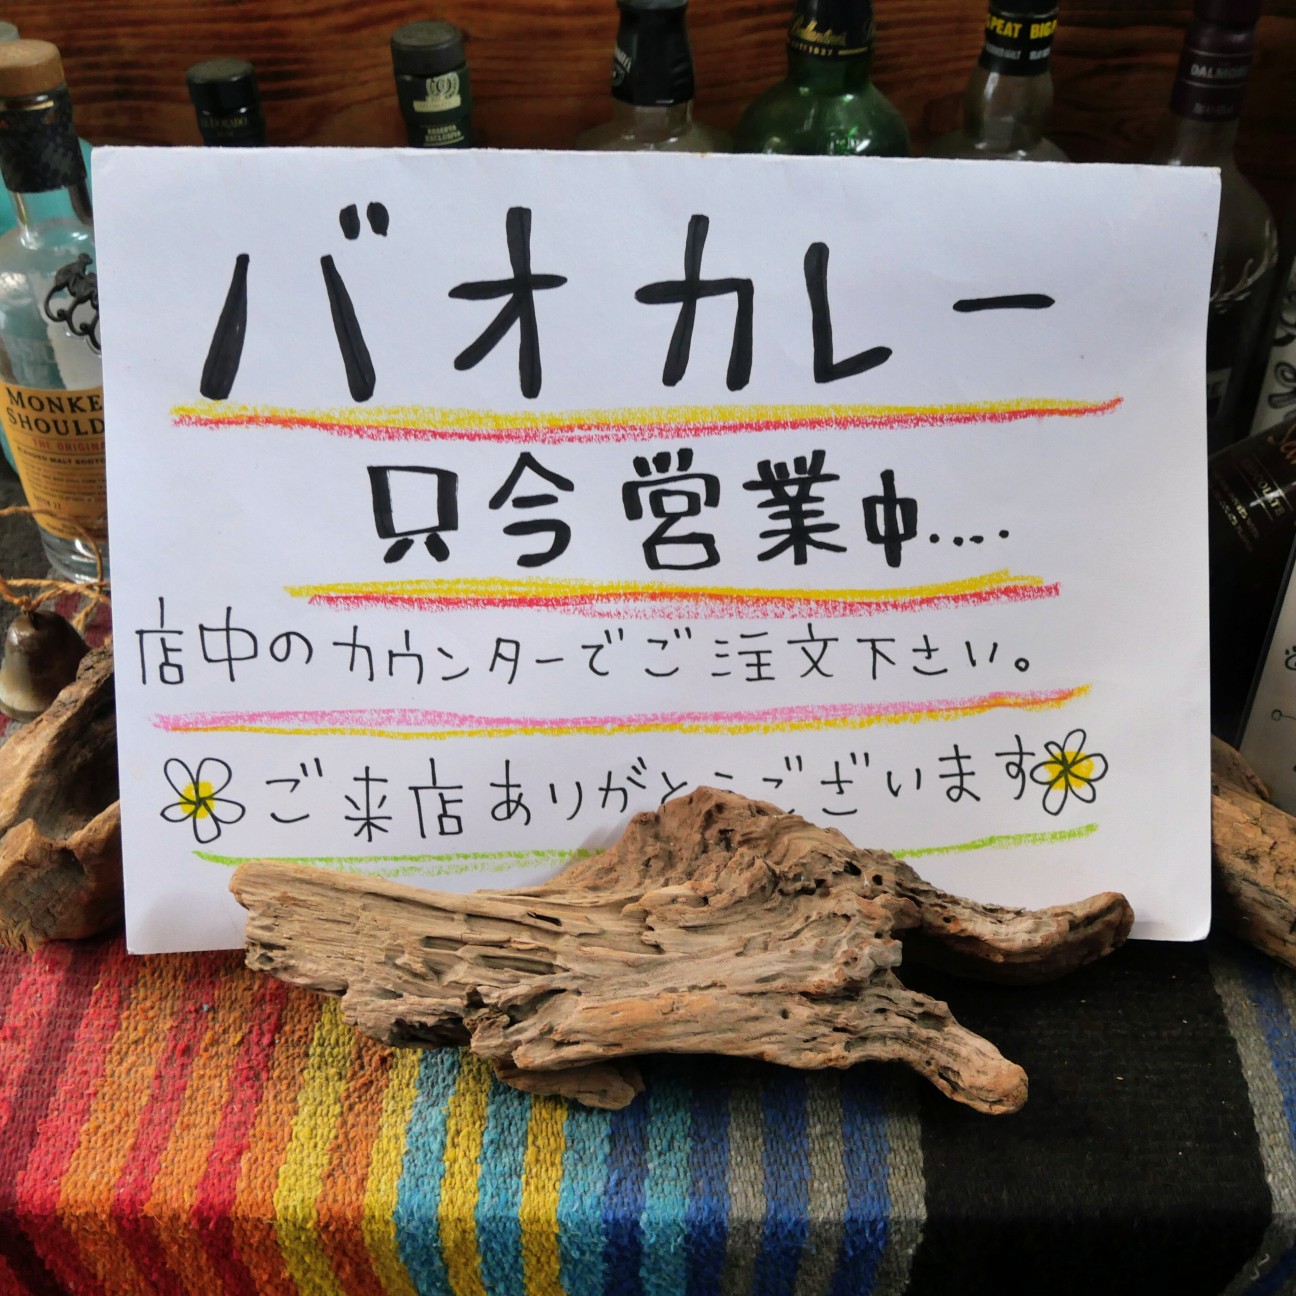 バオカレー
只今営業中....
店中のカウンターでご注文下さい。
ご来店ありがとうございます
MONKE
SHOULD
THE ORIGINA
BLENDED MALT SCOTC
PEAT BIG
DALMORE
RESERVA
EXCLUSIVA